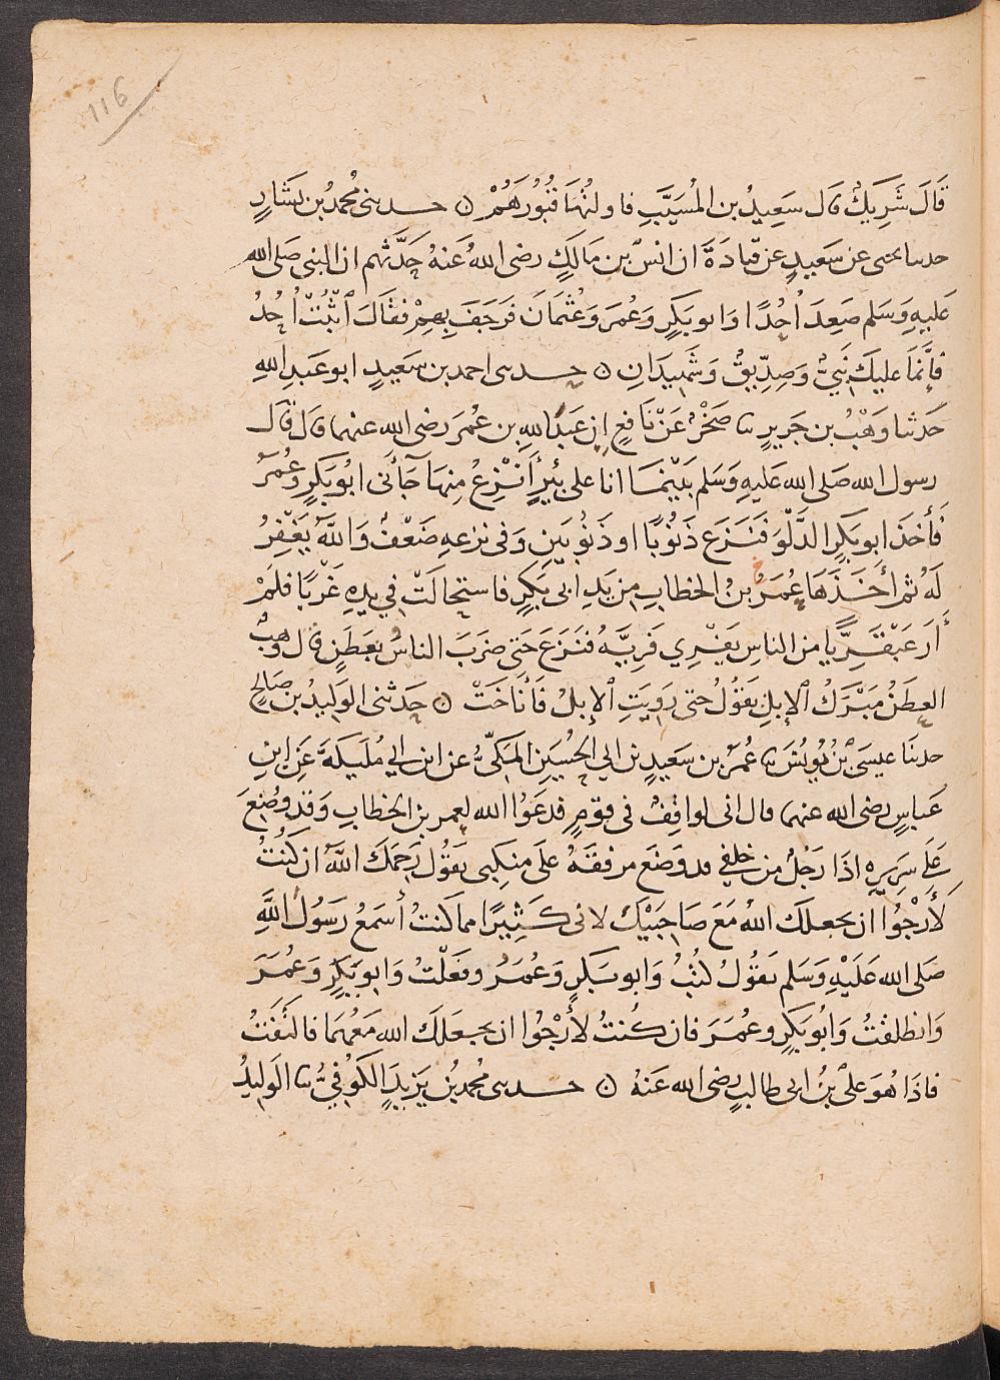 116
قَالَ شَرِيكٌ قَال سَعِيدُ بن المُسَيَّبِ فاولتُهَا قُبُورَهُمْ ن حدثنى مُحمدُ بن بَشَّارٍ
حدثنا يحيى عن سَعيدٍ عن قتادَةَ ان انسَ بن مَالِكٍ رضى اللهُ عَنهُ حَدَّثهم ان النبى صَلى الله
عَليهِ وَسَلم صَعِدَ اُحُدًا وَابو بَكرٍ وَعُمَرَ وَعُثمَانَ فَرَجَفَ بِهِمْ فَقَالَ ٱثْبُتْ اُحُدُ
فَإِنَّمَا عليكَ نَبِىٌّ وَصِدِّيقٌ وَشَهِيدَانِ ن حدثنى احمد بن سَعيدٍ ابو عَبدِ اللهِ
حَدثنا وَهْبُ بن جَريرٍ ثنا صَخْرٌ عَنْ نَافعٍ ان عَبدَ اللهِ بن عُمَرَ رضى الله عنهما قال قال
رسول الله صَلى الله عَليهِ وَسَلم بَيْنَمَا انا على بِئرٍ أَنْزِعُ مِنهَا جَآءَنى ابُو بَكرٍ وعُمَرُ
فَأَخَذَ ابو بَكرٍ الدَّلْوَ فَنَزَعَ ذَنُوْبًا او ذَنُوْبَينِ وَفى نزعهِ ضَعْفٌ وَاللَّهُ يَغْفِرُ
لَهُ ثم أَخَذَهَا عُمَرُ بنُ الخطابِ مِن يَدِ ابى بَكرٍ فاستحَالَتْ فِي يدهِ غَرْبًا فلَمْ
أَرَ عَبْقَرِيًّا من الناسِ يَفْرِي فَرِيَّهُ فَنَزَعَ حَتى ضرَبَ الناسُ بعَطَنٍ قال وَهبٌ
العطَنُ مَبْرَكُ ٱلإبلِ يَقُوْلُ حتى رَوِيَتِ ٱلإبلُ فَأَنَاخَتْ ن حَدثنى الوَلِيدُ بن صَالحٍ
حدثنَا عيسَى بْنُ يُونُسَ ثنا عُمَرُ بن سَعيدٍ بن ابي الحُسَينِ المَكىُّ عن ابن ابي مُلَيكَةَ عَنِ ابنِ
عَباسٍ رضى الله عنهما قال انى لواقِفٌ فى قومٍ فدعَوُا الله لعمر بن الخطابِ وَقد وُضِعَ
عَلَى سَرِيرِهِ اذَا رَجُلٌ من خلفِي قد وَضَع مرفقَهُ علَى مَنكِبى يَقُوْل رَحِمَكَ اللهُ ان كُنتُ
لَأَرْجُوْا ان يجعلَك اللهُ مَعَ صَاحِبَيْكَ لانى كَثِيرًا مما كنتُ أَسمَعُ رَسُوْلَ اللهِ
صَلى الله عَلَيْهِ وَسَلم يَقُوْلُ كُنْتُ وَابو بَكرٍ وَعُمَرُ وفَعَلْتُ وَابو بَكرٍ وَعُمَرَ
وَانطلقْتُ وَابُو بَكرٍ وعُمَرَ فان كُنتُ لأَرْجُوْا ان يجعَلَكَ الله مَعَهُمَا فالتَفَتُّ
فاذَا هُوَ علىُّ بنُ ابى طالبٍ رضى الله عَنهُ ن حدثنى مُحمدُ بْن يَزيدَ الكُوْفيُّ ثنا الوَلِيدُ